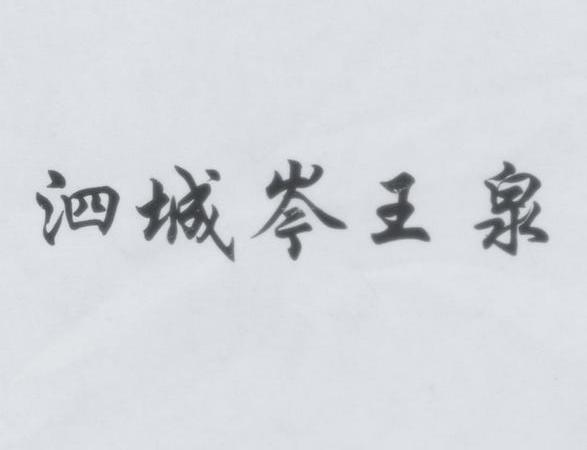 泗城岑王泉